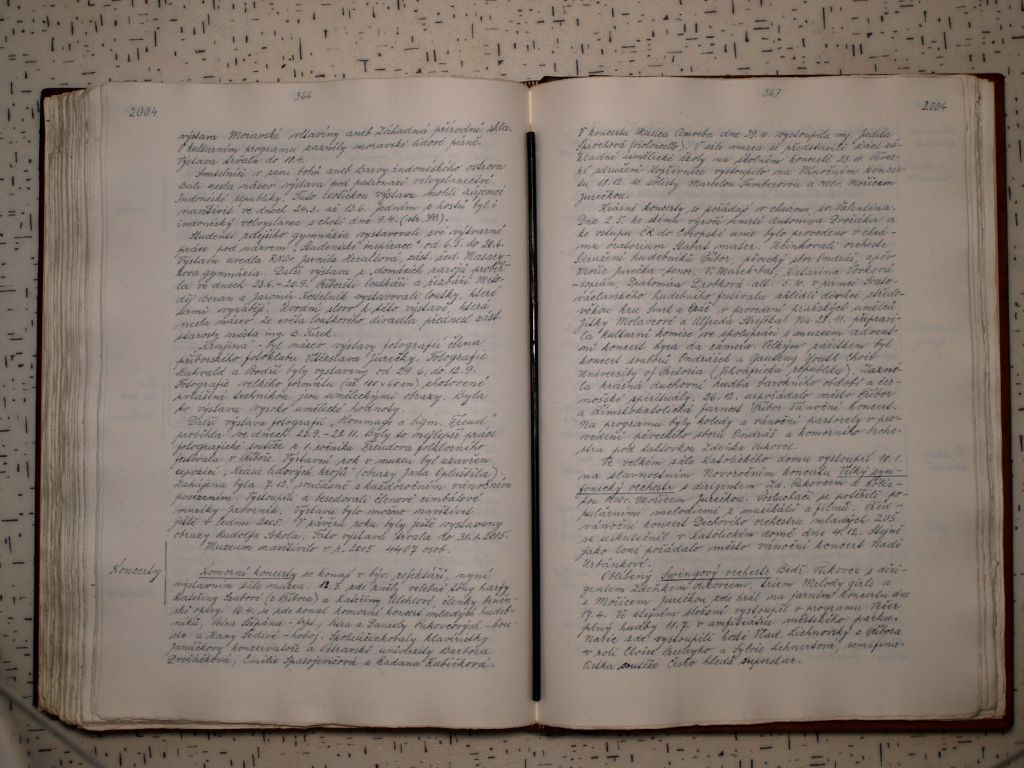 366
2004
výstava Moravské vltavíny aneb Záhadná přírodní skla.
V kulturním programu zazněly moravské lidové písně.
Výstava trvala do 18.4.
Umělníci v zemi bohů aneb Barvy indonéského ostrova
Bali nesla název výstava pod patronací velvyslanectví
Indonéské republiky. Tuto unikátní výstavu mohli zájemci
navštívit ve dnech 24.3. až 13.6. Jedním z hostů byl i
indonéský velvyslanec s chotí dne 9.4. (str. 341).
Studenti zdejšího gymnázia vystavovali své výtvarné
práce pod názvem "Studentské inspirace" od 6.5. do 20.6.
Výstavu uvedla RNDr Jarmila Heraltová, zást. řed. Masary-
kova gymnázia. Další výstava z domácích zdrojů proběh-
la ve dnech 23.6. - 20.9. Příborští loutkáři a řezbáři Meto-
děj Beran a Jaromír Kostelník vystavovali loutky, které
sami vyrábějí. Úvodní slovo k této výstavě, která
nesla název Ze světa loutkového divadla přednesl zást.
starosty města ing. B.
"Krajina" - byl název výstavy fotografií člena
příborského fotoklubu Vítězslava Jurečky. Fotografie
Hukvald a Rodů byly vystaveny od 29.6. do 12.9.
Fotografie velkého formátu (až 100 x 60 cm) zhotovené
zvláštní technikou jsou uměleckými obrazy. Byla
to výstava vysoké umělecké hodnoty.
Další výstava fotografií "Hommage a Sigm. Freud"
probíhala ve dnech 23.9. - 28.11. Byly to nejlepší práce
fotografické soutěže z 1. ročníku Freudova folklorního
festivalu v Příboře. Výstavní rok v muzeu byl uzavřen
expozicí "Krása lidových krojů" (obrazy Jana Oplištila).
Zahájena byla 7.12. současně s každoročním vánočním
posezením. Vystoupili a besedovali členové cimbálové
muziky Javorník. Výstavu bylo možno navštívit
ještě v lednu 2005. V závěru roku byly ještě vystaveny
obrazy Rudolfa Sokola. Tato výstava trvala do 31.1.2005.
Muzeum navštívilo v r. 2005 4407 osob.
Koncerty
Komorní koncerty se konají v býv. refektáři, nyní
výstavním sále muzea. 12.3. zde zněly velebné tóny harfy
Kateřiny (z Příbora) a Kateřiny členky brněn-
ské opery. 16.4. se zde konal komorní koncert mladých hudeb-
níků, Petra Štěpána - Petra a Daniely Vukovcových - hous-
le a Hany Šedivé - hoboj. Spoluúčinkovaly klavíristky
Janáčkovy konzervatoře a Ostravské univerzity Barbora
Dvořáčková, Emilie Spasojevicová a Radana Kubíčková.
367
2004
V koncertu Musica Amoeba dne 29.10. vystoupila mj. Judita
Šprochová (violoncello). V sále muzea se představili žáci zá-
kladní umělecké školy na školním koncertě 23.11. Pěvec-
ké sdružení Kopřivnice vystoupilo na Vánočním koncer-
tu 18.12. se sólisty Marcelou Gumberovou a MUDr. Mořicem
Jurečkou.
Krásné koncerty se pořádají v chrámu sv. Valentina.
Dne 2.5. ke stému výročí úmrtí Antonína Dvořáka a
ke vstupu ČR do Evropské unie bylo provedeno v chrá-
mu oratorium Stabat mater. Účinkovali orchestr
Sdružení hudebníků Příbor, pěvecký sbor Ondráš, zpěv
Mořic Jurečka - tenor, V. Mareček - bas, Katarina Vovková
- soprán, Drahomíra Drobková - alt. 5.10. v rámci Svato-
václavského hudebního festivalu zhlédli diváci středo-
věkou hru Smrt a hráč v provedení pražských umělců
Jitky Molavcové a Alfreda Strejčka. Na 28.11. připravi-
la kulturní komise ve spolupráci s muzeem advent-
ní koncert Lyra da camera. Velkým zážitkem byl
koncert souborů Ondrášek a Gauteng Youth Choir
University of Pretoria (Jihoafrická republika). Zazně-
la krásná duchovní hudba barokního období a čer-
nošské spirituály. 26.12. uspořádalo město Příbor
a Římskokatolická farnost Příbor Vánoční koncert.
Na programu byly koledy a vánoční pastorely v pro-
vedení pěveckého sboru Ondráš a komorního orche-
stru pod taktovkou Zdeňka Vukovce.
Ve velkém sále Katolického domu vystoupil 10.1.
na slavnostním Novoročním koncertu Velký sym-
fonický orchestr s dirigentem Zd. Vukovcem a sólis-
tou MUDr. Mořicem Jurečkou. Posluchači se potěšili po-
pulárními melodiemi z muzikálů a filmů. Před-
vánoční koncert Dechového orchestru mladých ZUŠ
se uskutečnil v Katolickém domě dne 4.12. Stejně
jako loni pořádalo město vánoční koncert Nadi
Urbánkové.
Oblíbený Swingový orchestr Bedř. Vukovce s diri-
gentem Zdeňkem Vukovcem, triem Melody girls a
s Mořicem Jurečkou zde hrál na jarním koncertu dne
17.4. Ve stejném složení vystoupil v programu Večer
plný hudby 11.7. v amfiteátru městského parku.
Navíc zde vystoupili hosté Vlad. Lichnovský z Příbora
v roli Elvise Presleyho a Sylvie Lehnertová, semifina-
listka soutěže Česko hledá superstar.